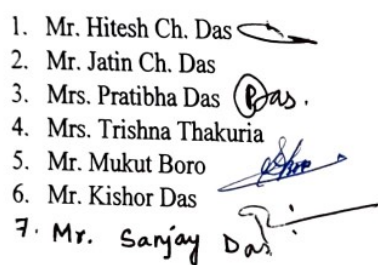 1. Mr. Hitesh Ch. Das
2. Mr. Jatin Ch. Das
3. Mrs. Pratibha Das PDas.
4. Mrs. Trishna Thakuria
5. Mr. Mukut Boro
6. Mr. Kishor Das
7. Mr. Sanjay Das